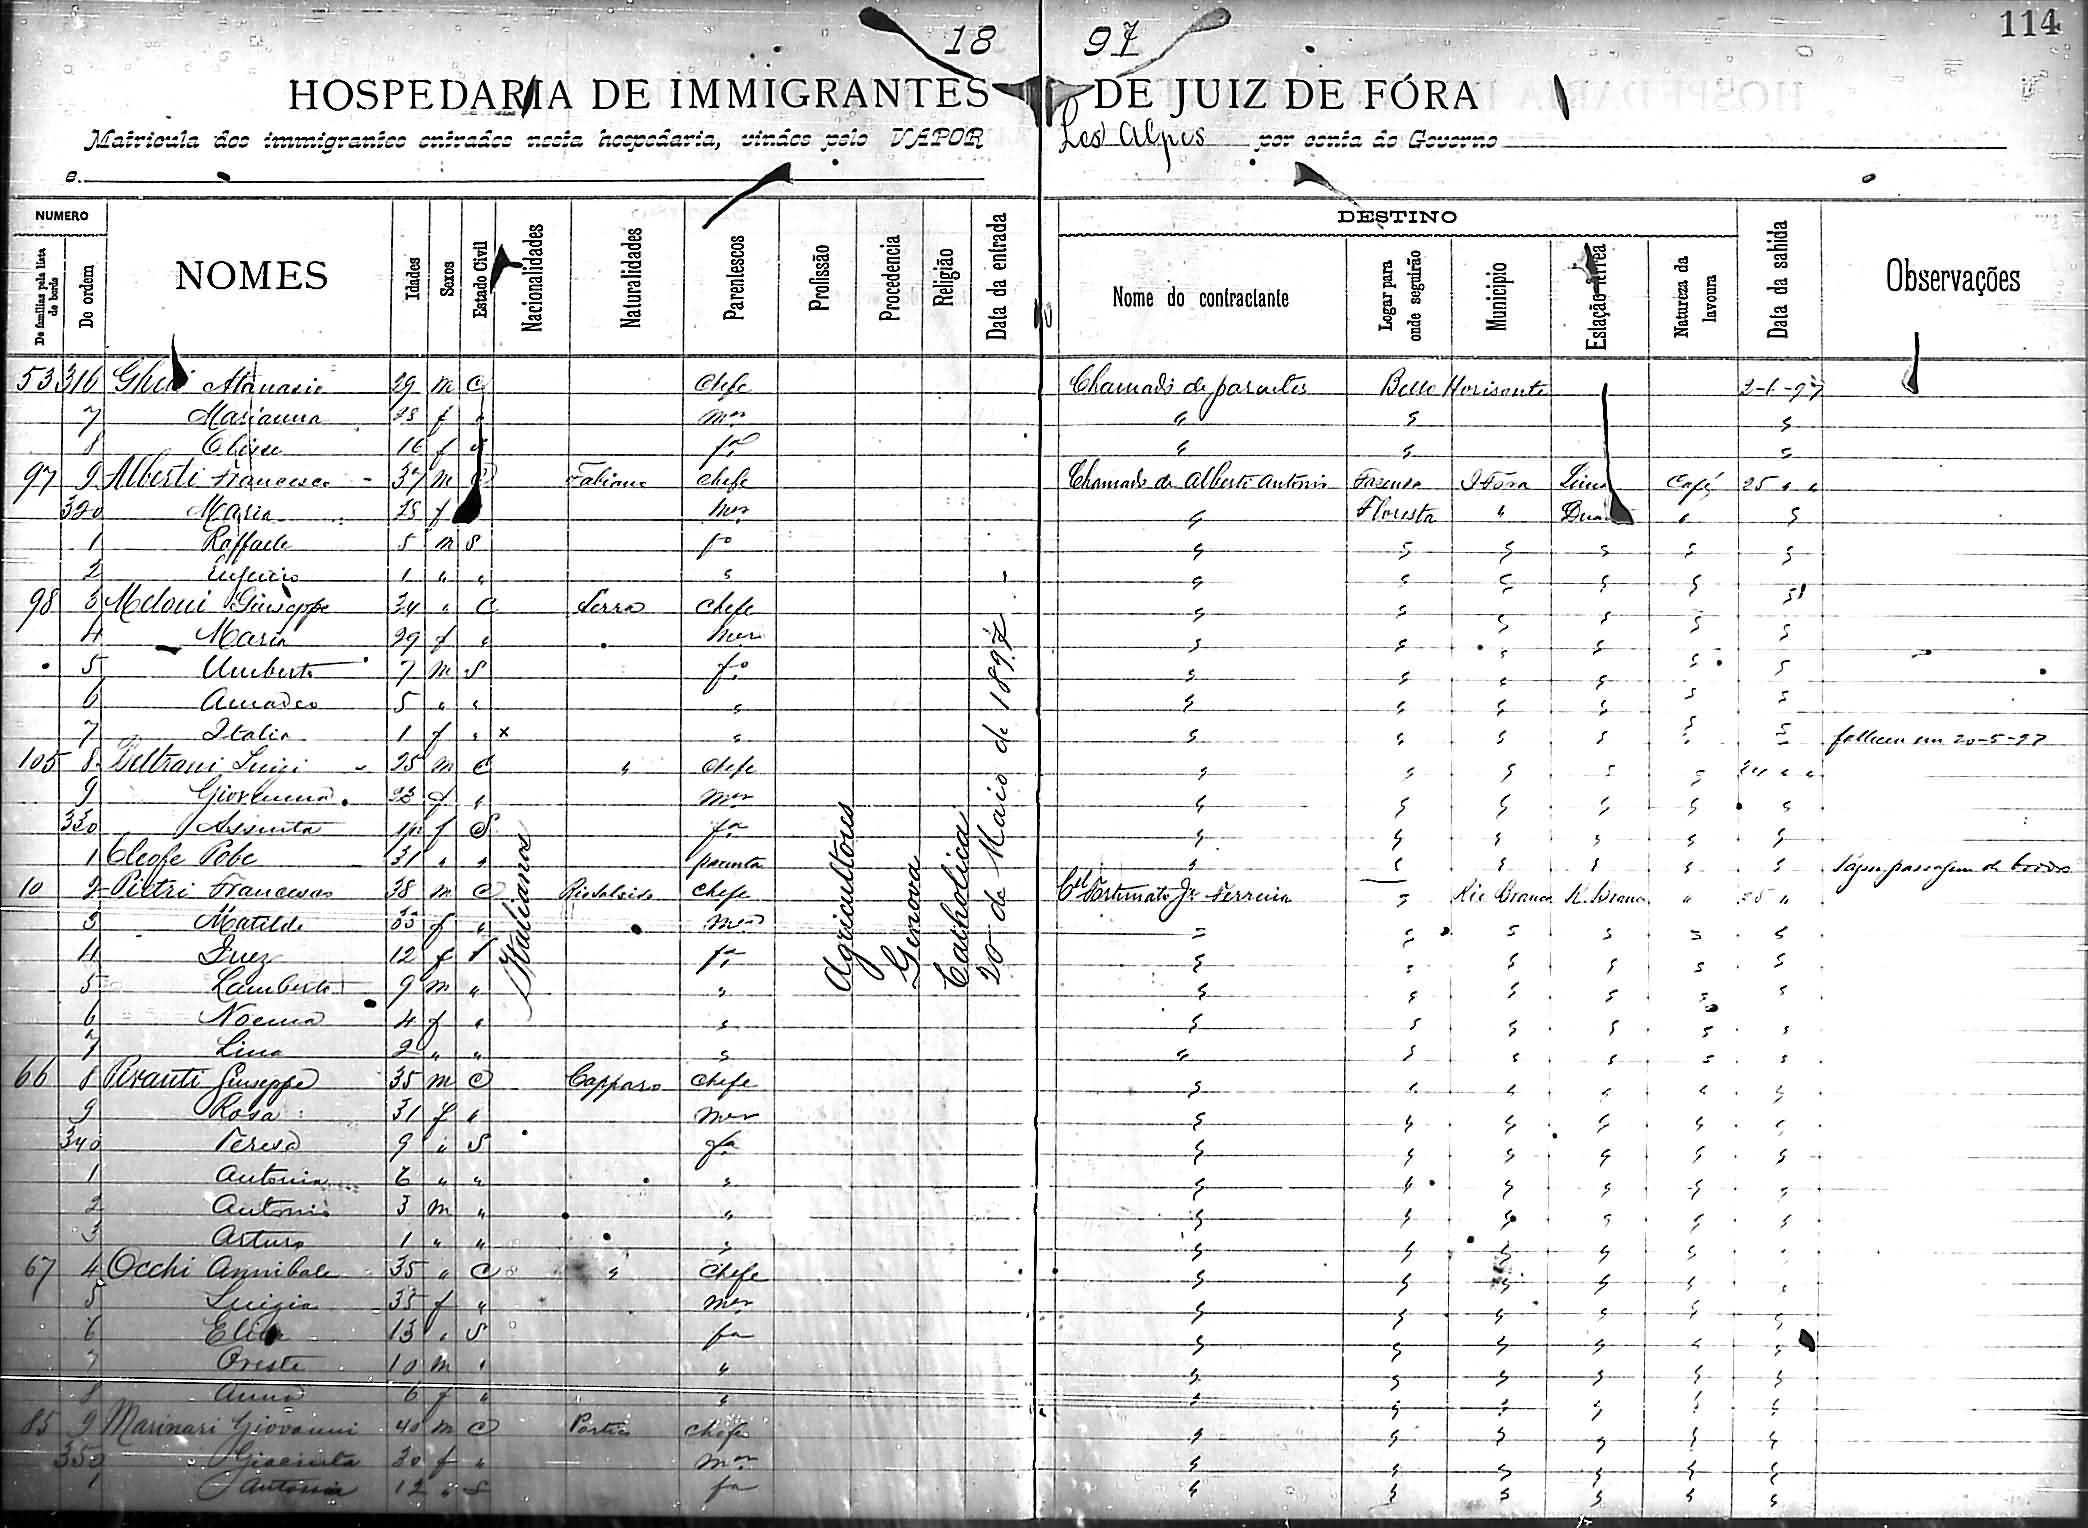 114
18 97
HOSPEDARIA DE IMMIGRANTES DE JUIZ DE FÓRA
Matricula dos immigrantes entrados nesta hospedaria, vindos pelo VAPOR Les Alpes por conta do Governo
e.
NUMERO DESTINO
De familias pela lista de bordo Do ordem NOMES Idades Sexos Estado Civil Nacionalidades Naturalidades Parentescos Profissão Procedencia Religião Data da entrada Nome do contractante Logar para onde seguirão Municipio Estação ferrea Natureza da lavoura Data da sahida Observações
53 316 Atanasio 29 m C Chefe Chamado de parentes Bello Horisonte 2-6-97
7 Marianna 28 f " mer " " "
8 Elvise 16 f fa " " "
97 9 Alberti Francesco 37 m C Fabiano Chefe Chamado de Alberti Antonio Fazenda J Fóra Lima Café 25 " "
320 Maria 28 f mer " Floresta " Duarte " "
1 Raffaele 5 m S fo " " " " " "
2 1 " " " " " " " " "
98 3 Meloni Giuseppe 34 " C Serra Chefe " " " " " "
4 Maria 29 f " mer " " " " " "
5 Umberto 7 m S fo " " " " " "
6 Amadeo 5 " " " " " " " " "
7 Italia 1 f " x " " " " " " " falleceu em 20-5-97
105 8 Beltrami Luigi 25 m C " Chefe " " " " " 24 " "
9 Giovanna 23 f " mer " " " " " "
330 Assunta f S fa " " " " " "
1 Cleofe Pobe 31 " " parenta " " " " " " passagem de bordo
10 2 Pietri Francesco 38 m C Chefe Cel Fortunato Jr Ferreira " Rio Branco R. Branco " 25 "
3 Matilde 33 f " mer " " " " " "
4 Inez 12 f S fa " " " " " "
5 Lamberto 9 m " " " " " " " "
6 Noema 4 f " " " " " " " "
7 Lina 2 " " " " " " " " "
66 8 Pivanti Giuseppe 35 m C Capparo Chefe " " " " " "
9 Rosa 31 f " mer " " " " " "
340 Teresa 9 " S fa " " " " " "
1 Antonia 6 " " " " " " " " "
2 Antonio 3 m " " " " " " " "
3 Arturo 1 " " " " " " " " "
67 4 Occhi Annibale 35 " C " Chefe " " " " " "
5 Luigia 35 f " mer " " " " " "
6 13 " S fa " " " " " "
7 Oreste 10 m " " " " " " " "
8 Anna 6 f " " " " " " " "
85 9 Marinari Giovanni 40 m C Portio Chefe " " " " " "
350 Giacinta 30 f " mer " " " " " "
1 Antonia 12 " S fa " " " " " "
Italianos
Agricultores
Genova
Catholica
20 de Maio de 1897